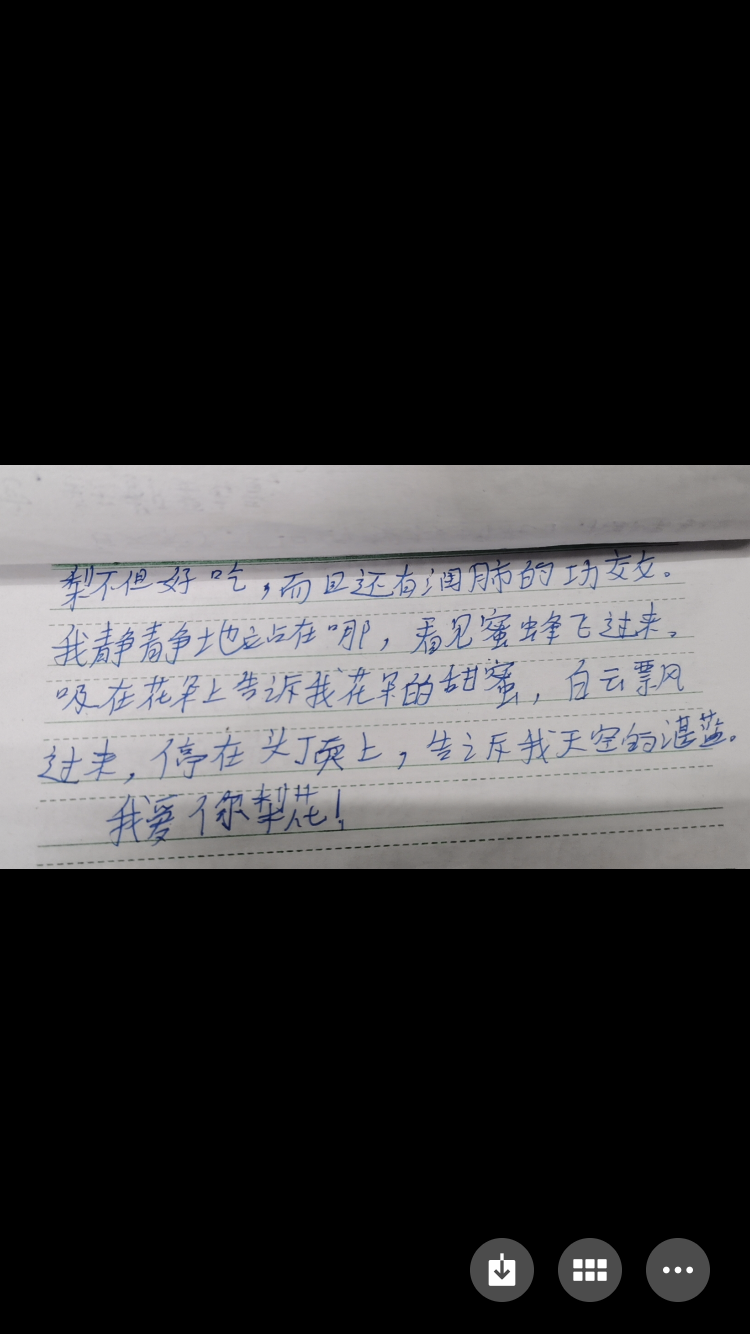 梨不但好吃，而且还有润肺的功效。
我静静地站在哪，看见蜜蜂飞过来，
吸在花朵上告诉我花朵的甜蜜，白云飘
过来，停在头顶上，告诉我天空的湛蓝。
我爱你梨花！